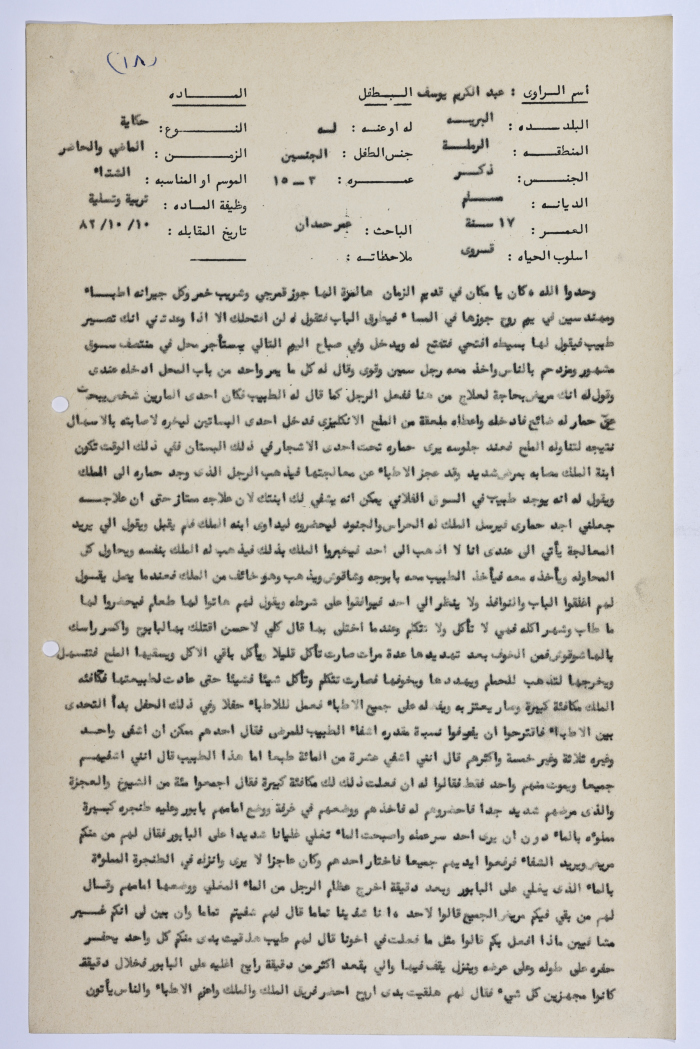 (١٨)
اسم الراوي : عبد الكريم يوسف الطفل المادة
البلده : البريه له او عنه : له النوع : حكاية
المنطقه : الرملة جنس الطفل : الجنسين الزمن : الماضي والحاضر
الجنس : ذكر عمره : ٣ ــ ١٥ الموسم او المناسبه : الشتاء
الديانه : مسلم وظيفة الماده : تربية وتسلية
العمر : ١٧ سنة الباحث : عمر حمدان تاريخ المقابله : ١٠/١٠/٨٢
اسلوب الحياه : قروى ملاحظاته :
وحدوا الله ٠ كان يا مكان في قديم الزمان هالعزة الها جوز قمرجي وشريب خمر وكل جيرانه اطباء
ومهندسين في يوم روح جوزها في المساء فيطرق الباب فتقول له لن افتحلك الا اذا وعدتني انك تصير
طبيب فيقول لها بسيطه افتحي فتفتح له ويدخل وفي صباح اليوم التالي يستأجر محل في منتصف سوق
مشهور ومزدحم بالناس واخذ معه رجل سمين وقوى وقال له كل ما يمر واحد من باب المحل ادخله عندى
وقول له انك مريض بحاجة لعلاج من هنا ففعل الرجل كما قال له الطبيب فكان احدى المارين شخص يبحث
عن حمار له ضائع فادخله واعطاه ملعقة من الملح الانكليزى فدخل احدى البساتين ليخره لاصابته بالاسهال
نتيجه لتناوله الملح فعند جلوسه يرى حماره تحت احدى الاشجار في ذلك البستان ففي ذلك الوقت تكون
ابنة الملك مصابه بمرض شديد وقد عجز الاطباء عن معالجتها فيذهب الرجل الذى وجد حماره الى الملك
ويقول له انه يوجد طبيب في السوق الفلاني يمكن انه يشفي لك ابنتك لان علاجه ممتاز حتى ان علاجه
جعلني اجد حمارى فيرسل الملك له الحراس والجنود ليحضروه ليداوى ابنه الملك فلم يقبل ويقول الي يريد
المعالجة يأتي الى عندى انا لا اذهب الى احد فيخبروا الملك بذلك فيذهب له الملك بنفسه ويحاول كل
المحاوله ويأخذه معه فيأخذ الطبيب معه بابوجه وشاقوش ويذهب وهو خائف من الملك فعندما يصل يقول
لهم اغلقوا الباب والنوافذ ولا ينظر الي احد فيوافقوا على شرطه ويقول لهم هاتوا لها طعام فيحضروا لها
ما طاب وشهر اكله فهي لا تأكل ولا تتكلم وعندما اختلى بها قال كلي لاحسن اقتلك بهالبابوج واكسر راسك
بالهاشوقوش فمن الخوف بعد تهديدها عدة مرات صارت تأكل قليلا ويأكل باقي الاكل ويسقيها الملح فتتسهل
ويخرجها لتذهب للحمام ويهددها ويخوفها فصارت تتكلم وتأكل شيئا فشيئا حتى عادت لطبيعتها فكافئه
الملك مكافئة كبيرة وصار يعتز به ويفضله على جميع الاطباء فعمل للاطباء حفلا وفي ذلك الحفل بدأ التحدى
بين الاطباء فاقترحوا ان يقولوا نسبة مقدره اشفاء الطبيب للمرضى فقال احدهم ممكن ان اشفى واحد
وغيره ثلاثة وغير خمسة واكثرهم قال انني اشفي عشرة من المائة طبعا اما هذا الطبيب قال انني اشفيهم
جميعا ويموت منهم واحد فقط فقالوا له ان فعلت ذلك لك مكافئة كبيرة فقال اجمعوا مئة من الشيوخ والعجزة
والذى مرضهم شديد جدا فاحضروهم له فاخذهم ووضعهم في غرفة ووضع امامهم بابور وعليه طنجره كبيرة
مملوءه بالماء دون ان يرى احد سر عمله واصبحت الماء تغلي غليانا شديدا على البابور فقال لهم من منكم
مريض ويريد الشفاء فرفعوا ايديهم جميعا فاختار احدهم وكان عاجزا لا يرى وانزله في الطنجرة المملوءة
بالماء الذى يغلي على البابور وبعد دقيقة اخرج عظام الرجل من الماء المغلي ووضعها امامهم وقال
لهم من بقي فيكم مريض الجميع قالوا لاحد ٠ انا شفينا تماما قال لهم شفيتم تماما وان بين لى انكم غير
مشافيين ماذا افعل بكم قالوا مثل ما فعلت في اخونا قال لهم طيب هلقيت بدى منكم كل واحد يحفر
حفره على طوله وعلى عرضه وينزل يقف فيها والي بقعد اكثر من دقيقة رايح اغليه على البابور فخلال دقيقة
كانوا مجهزين كل شيء فقال لهم هلقيت بدى اروح احضر فريق الملك والملك واعزم الاطباء والناس يأتون